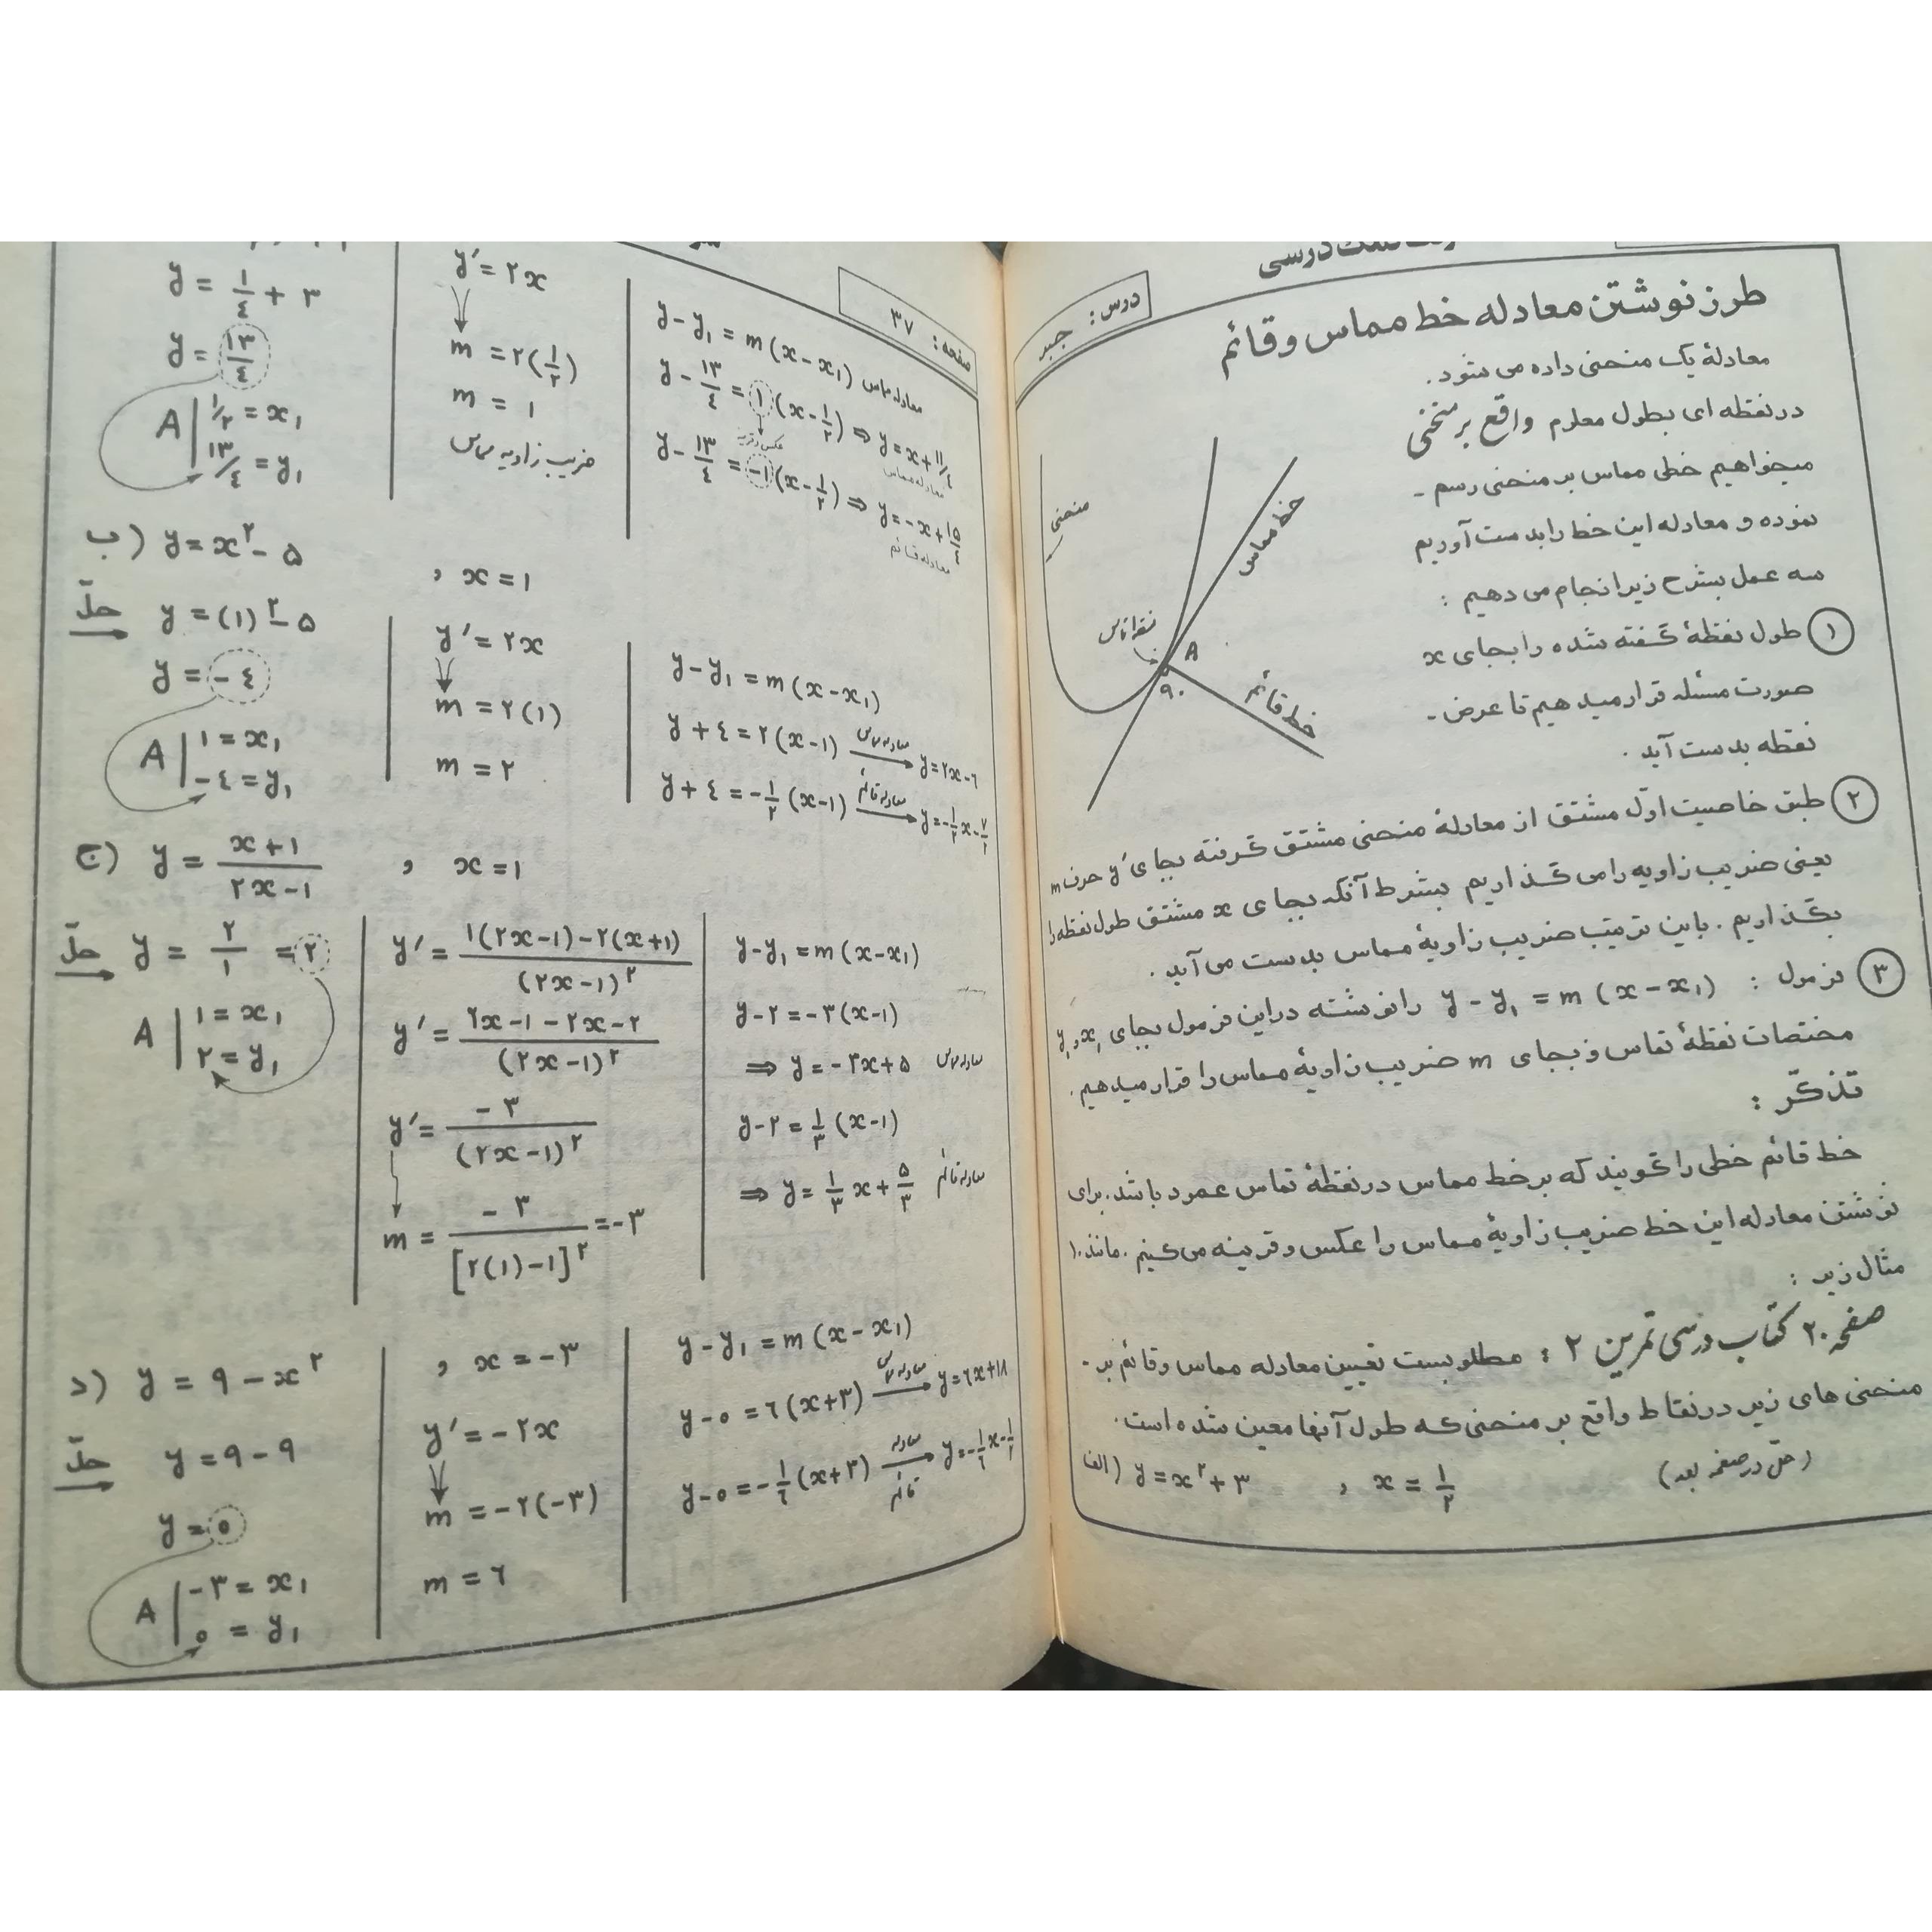 درس : جبر
طرز نوشتن معادله خط مماس و قائم
معادلهٔ یک منحنی داده می شود .
در نقطه ای بطول معلوم واقع بر منحنی
میخواهیم خطی مماس بر منحنی رسم -
نموده و معادله این خط را بدست آوریم
سه عمل بشرح زیر انجام می دهیم :
۱ طول نقطهٔ گفته شده را بجای x
صورت مسئله قرار میدهیم تا عرض -
نقطه بدست آید .
منحنی
خط مماس
نقطه تماس
A
۹۰
خط قائم
۲ طبق خاصیت اوّل مشتق از معادلهٔ منحنی مشتق گرفته بجای y′ حرف m
یعنی ضریب زاویه را می گذاریم بشرط آنکه بجای x مشتق طول نقطه را
بگذاریم . باین ترتیب ضریب زاویهٔ مماس بدست می آید .
۳ فرمول : y - y₁ = m (x - x₁) را نوشته در این فرمول بجای x₁ و y₁
مختصات نقطهٔ تماس و بجای m ضریب زاویهٔ مماس را قرار میدهیم .
تذکّر :
خط قائم خطی را گویند که بر خط مماس در نقطهٔ تماس عمود باشد . برای
نوشتن معادله این خط ضریب زاویهٔ مماس را عکس و قرینه می کنیم . مانند
مثال زیر :
صفحه ۲۰ کتاب درسی تمرین ۲ : مطلوبست تعیین معادله مماس و قائم بر -
منحنی های زیر در نقاط واقع بر منحنی که طول آنها معین شده است .
الف) y = x² + ۳ , x = ۱/۲ (حل در صفحه بعد)
صفحه : ۳۷
y = ۱/۴ + ۳
y = ۱۳/۴
A | ۱/۲ = x₁
۱۳/۴ = y₁
y′ = ۲x
m = ۲(۱/۲)
m = ۱
ضریب زاویه مماس
y - y₁ = m (x - x₁) معادله مماس
y - ۱۳/۴ = ۱ (x - ۱/۲) ⇒ y = x + ۱۱/۴
معادله مماس
y - ۱۳/۴ = -۱ (x - ۱/۲) ⇒ y = -x + ۱۵/۴
معادله قائم
ب) y = x² - ۵ , x = ۱
حلّ y = (۱)² - ۵
y = -۴
A | ۱ = x₁
-۴ = y₁
y′ = ۲x
m = ۲(۱)
m = ۲
y - y₁ = m (x - x₁)
y + ۴ = ۲(x - ۱) معادله مماس → y = ۲x - ۶
y + ۴ = -۱/۲ (x - ۱) معادله قائم → y = -۱/۲ x - ۷/۲
ج) y = (x + ۱)/(۲x - ۱) , x = ۱
حلّ y = ۲/۱ = ۲
A | ۱ = x₁
۲ = y₁
y′ = (۱(۲x - ۱) - ۲(x + ۱))/(۲x - ۱)²
y′ = (۲x - ۱ - ۲x - ۲)/(۲x - ۱)²
y′ = -۳/(۲x - ۱)²
m = -۳/[۲(۱) - ۱]² = -۳
y - y₁ = m (x - x₁)
y - ۲ = -۳(x - ۱)
⇒ y = -۳x + ۵ معادله مماس
y - ۲ = ۱/۳ (x - ۱)
⇒ y = ۱/۳ x + ۵/۳ معادله قائم
د) y = ۹ - x² , x = -۳
حلّ y = ۹ - ۹
y = ۰
A | -۳ = x₁
۰ = y₁
y′ = -۲x
m = -۲(-۳)
m = ۶
y - y₁ = m (x - x₁)
y - ۰ = ۶(x + ۳) معادله مماس → y = ۶x + ۱۸
y - ۰ = -۱/۶ (x + ۳) معادله قائم → y = -۱/۶ x - ۱/۲